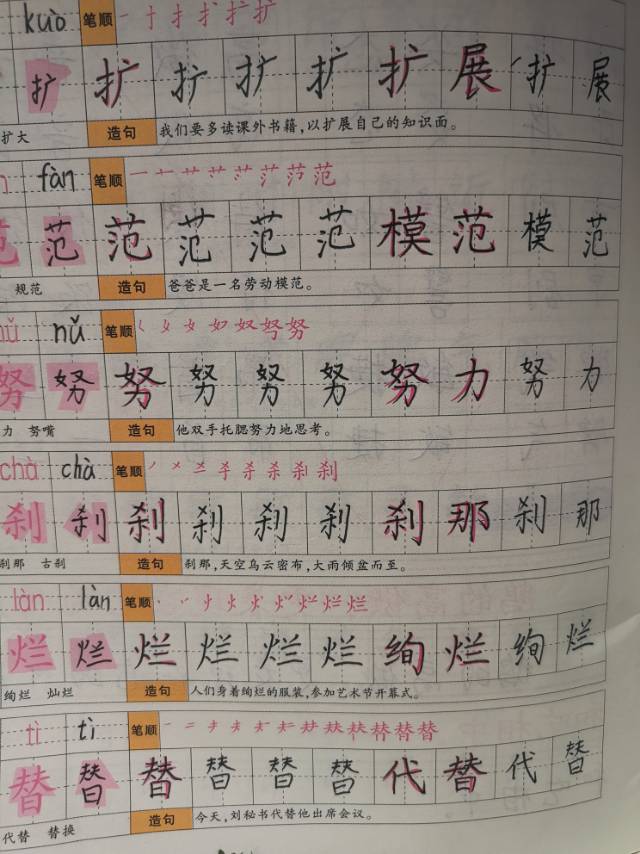 kuò 笔顺 一 十 扌 扩 扩 扩
扩 扩 扩 扩 扩 扩 展 扩 展
扩大 造句 我们要多读课外书籍,以扩展自己的知识面。
fàn 笔顺 范
范 范 范 范 范 范 模 范 模 范
规范 造句 爸爸是一名劳动模范。
nǔ nǔ 笔顺 ㄑ 夕 女 如 奴 奴 努 努
努 努 努 努 努 努 努 力 努 力
力 努嘴 造句 他双手托腮努力地思考。
chà chà 笔顺 杀 杀 刹 刹
刹 刹 刹 刹 刹 刹 刹 那 刹 那
刹那 古刹 造句 刹那,天空乌云密布,大雨倾盆而至。
làn làn 笔顺 烂 烂
烂 烂 烂 烂 烂 烂 绚 烂 绚 烂
绚烂 灿烂 造句 人们身着绚烂的服装,参加艺术节开幕式。
tì tì 笔顺 一 二 替 替 替
替 替 替 替 替 替 代 替 代 替
代替 替换 造句 今天,刘秘书代替他出席会议。